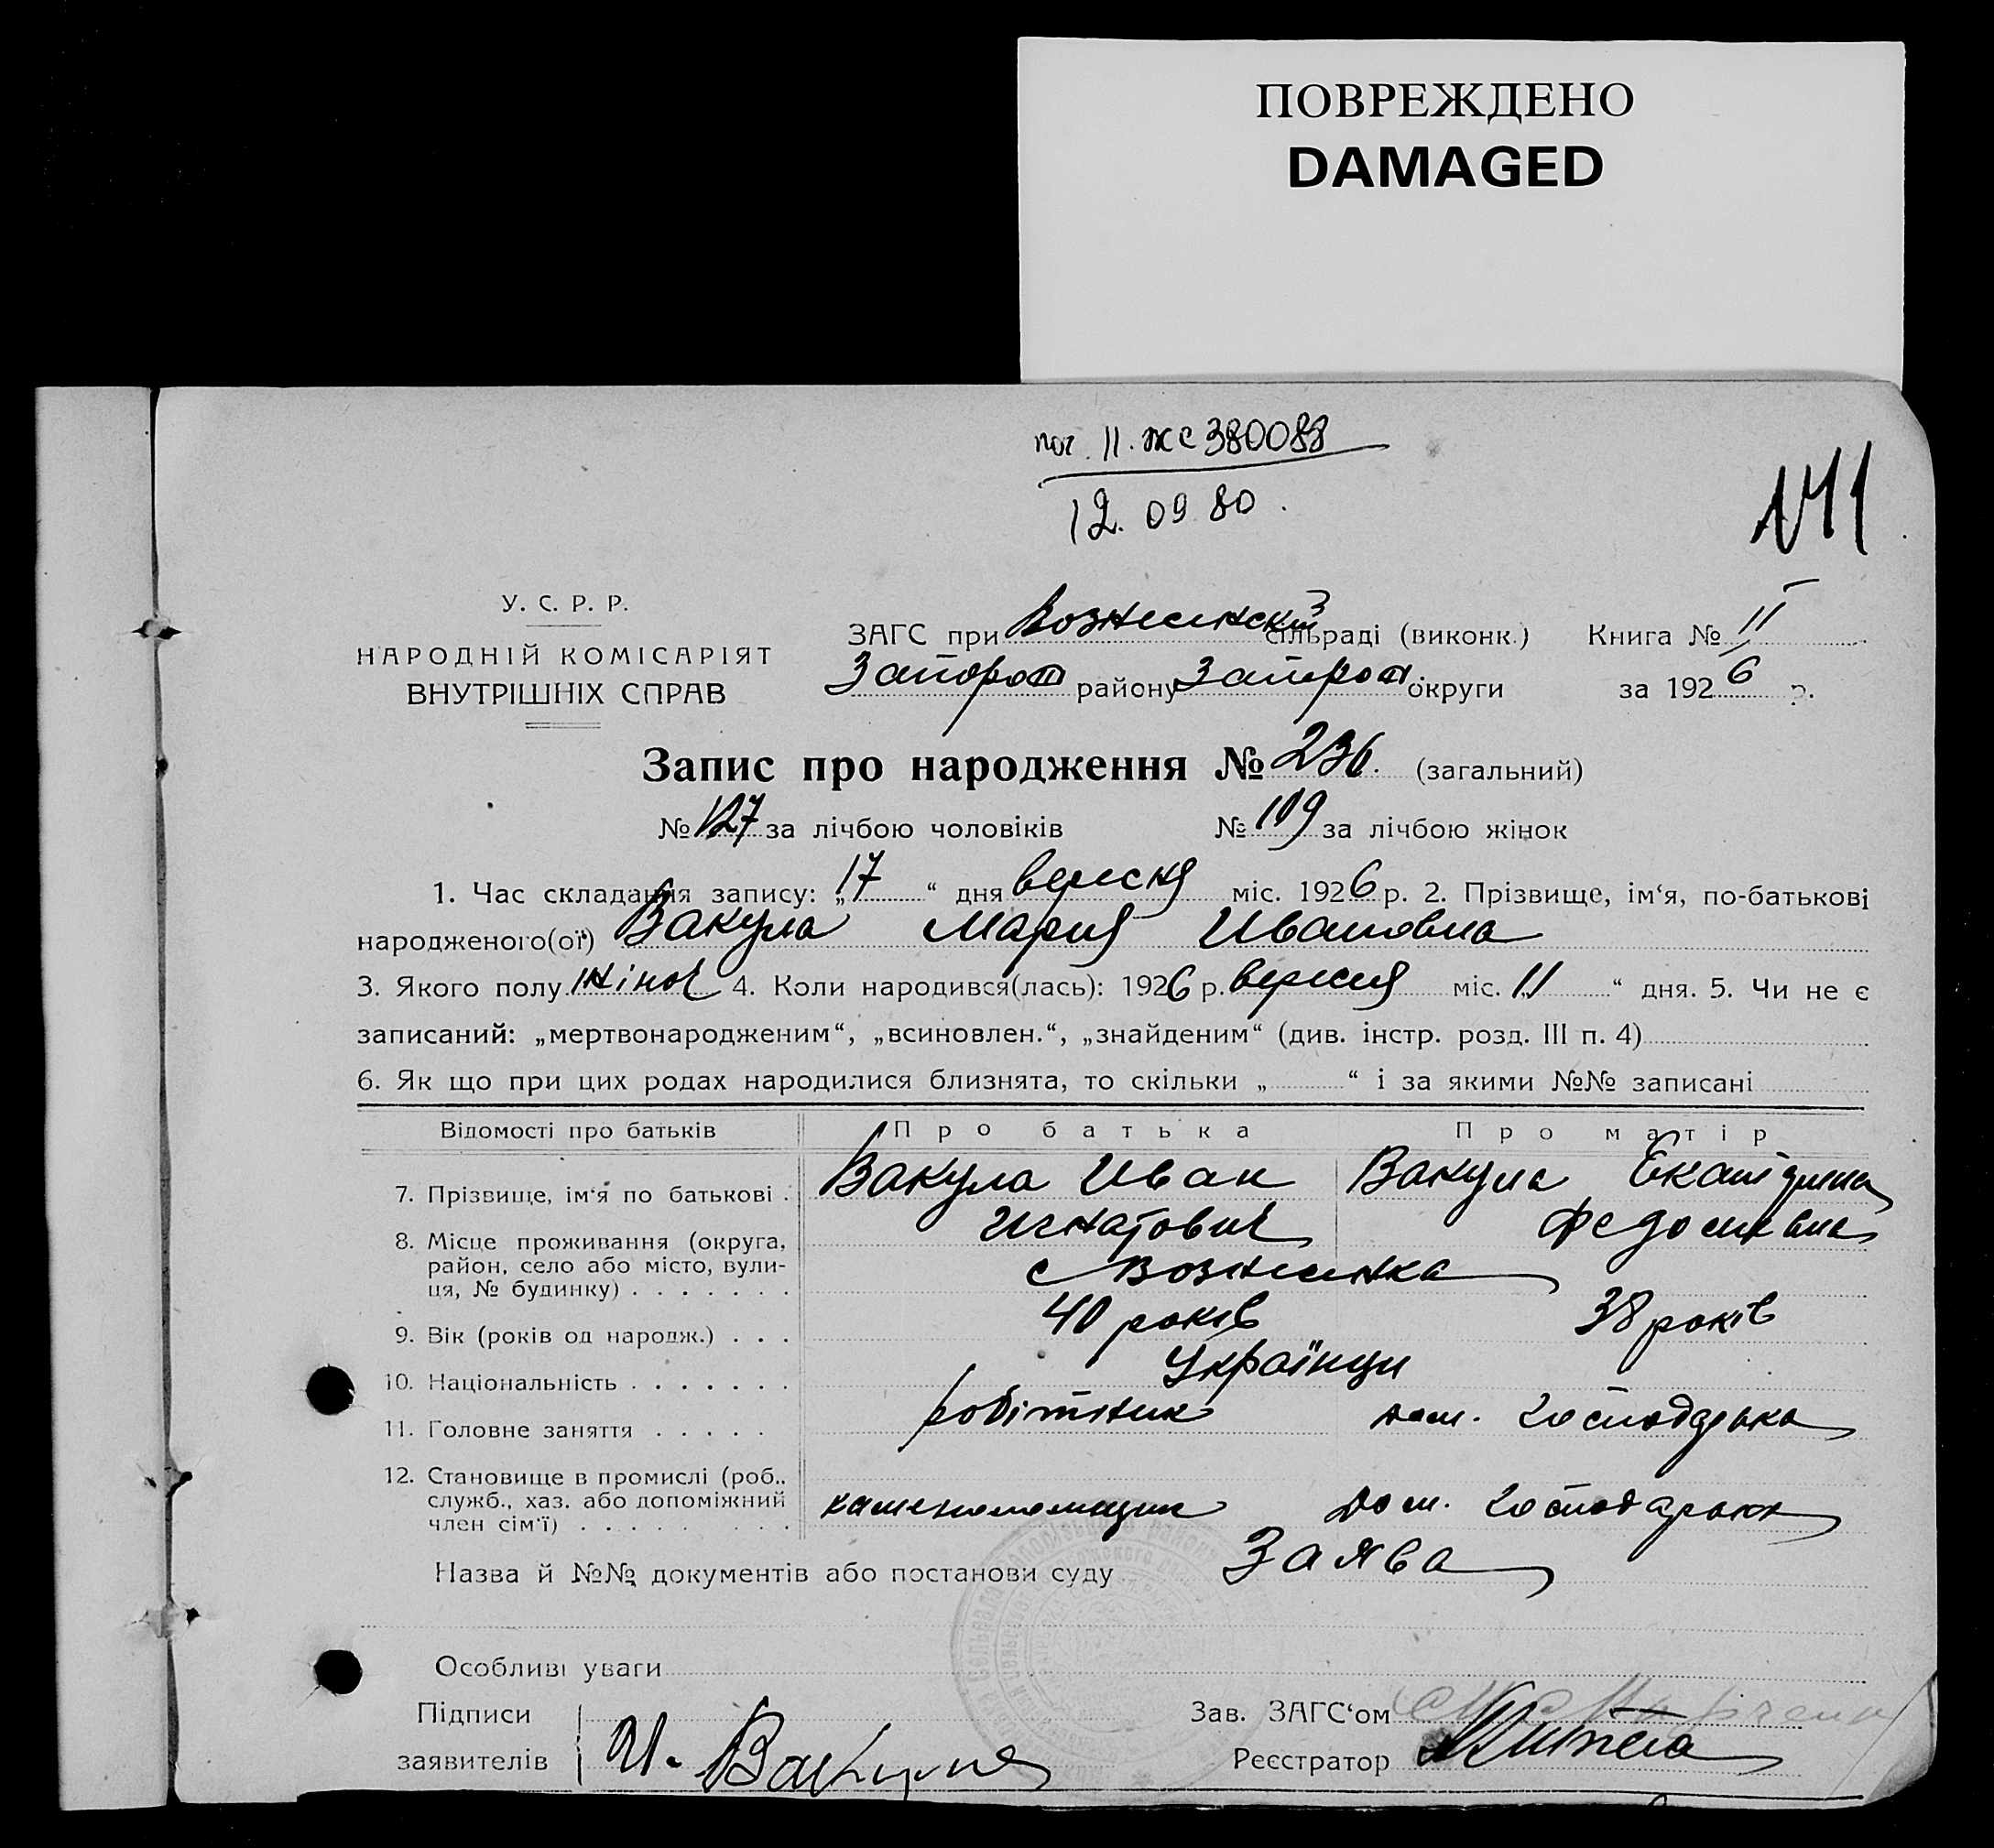 ПОВРЕЖДЕНО
DAMAGED
пог. II. ЖС 380088
12. 09 80.
141
У. С. Р. Р.
НАРОДНІЙ КОМІСАРІЯТ
ВНУТРІШНІХ СПРАВ
ЗАГС при Вознесинскій сільраді (виконк.) Книга № II
Запорож району Запорож. округи за 1926 р.
Запис про народження № 236. (загальний)
№ 127 за лічбою чоловіків № 109 за лічбою жінок
1. Час складання запису: „17“ дня вересня міс. 1926 р. 2. Прізвище, ім‘я, по-батькові
народженого(ої) Вакула Мария Ивановна
3. Якого полу жіноч 4. Коли народився(лась): 1926 р. вересня міс. „11“ дня. 5. Чи не є
записаний: „мертвонародженим“, „всиновлен.“, „знайденим“ (див. інстр. розд. III п. 4)
6. Як що при цих родах народилися близнята, то скільки „ “ і за якими №№ записані
Відомості про батьків Про батька Про матір
7. Прізвище, ім‘я по батькові . Вакула Иван Игнатович Вакула Екатірина
8. Місце проживання (округа, район, село або місто, вулиця, № будинку) . . . . . . . с Вознесинка
9. Вік (років од народж.) . . . 40 років 38 років
10. Національність . . . . . . . Українци
11. Головне заняття . . . . . робітник дом. господарька
12. Становище в промислі (роб., служб., хаз. або допоміжний член сім‘ї) . . . . . . . . каменоломщик дом. господарька
Назва й №№ документів або постанови суду Заява
Особливі уваги
Підписи
заявителів И. Вакула
Зав. ЗАГС‘ом
Реєстратор